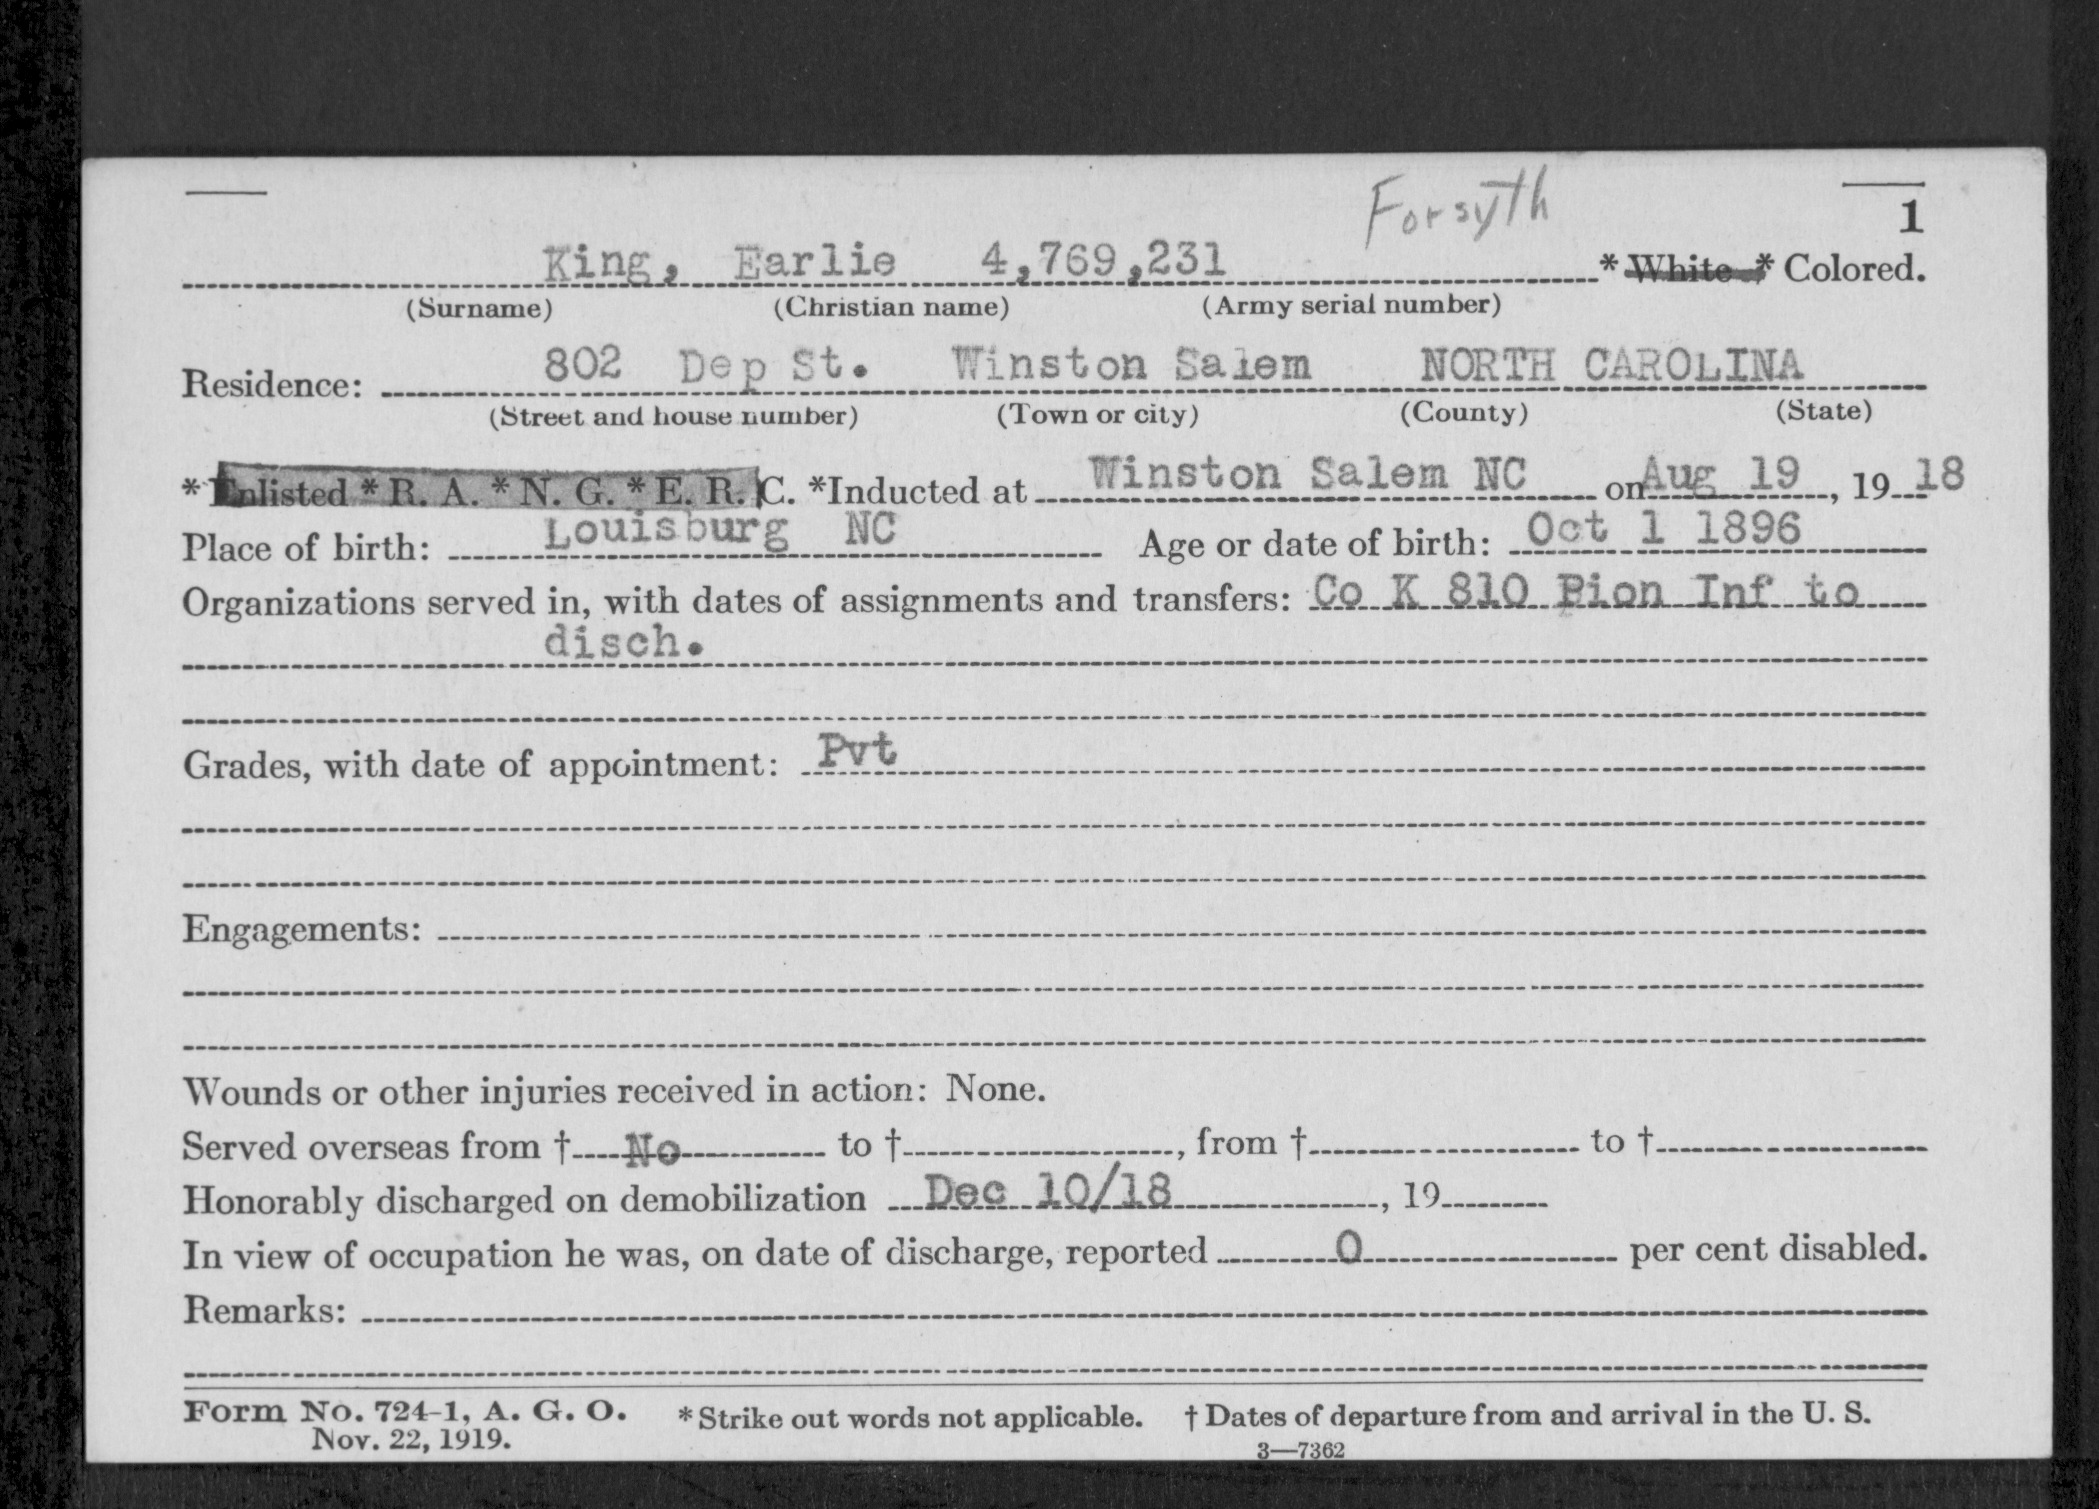 Forsyth
1
King, Earlie 4,769,231 * White * Colored.
(Surname) (Christian name) (Army serial number)
Residence: 802 Dep St. Winston Salem NORTH CAROLINA
(Street and house number) (Town or city) (County) (State)
* Enlisted * R. A. * N. G. * E. R. C. *Inducted at Winston Salem NC on Aug 19, 19 18
Place of birth: Louisburg NC Age or date of birth: Oct 1 1896
Organizations served in, with dates of assignments and transfers: Co K 810 Pion Inf to
disch.
Grades, with date of appointment: Pvt
Engagements:
Wounds or other injuries received in action: None.
Served overseas from † No to †, from † to †
Honorably discharged on demobilization Dec 10/18, 19
In view of occupation he was, on date of discharge, reported 0 per cent disabled.
Remarks:
Form No. 724-1, A. G. O. * Strike out words not applicable. † Dates of departure from and arrival in the U. S.
Nov. 22, 1919. 3—7362